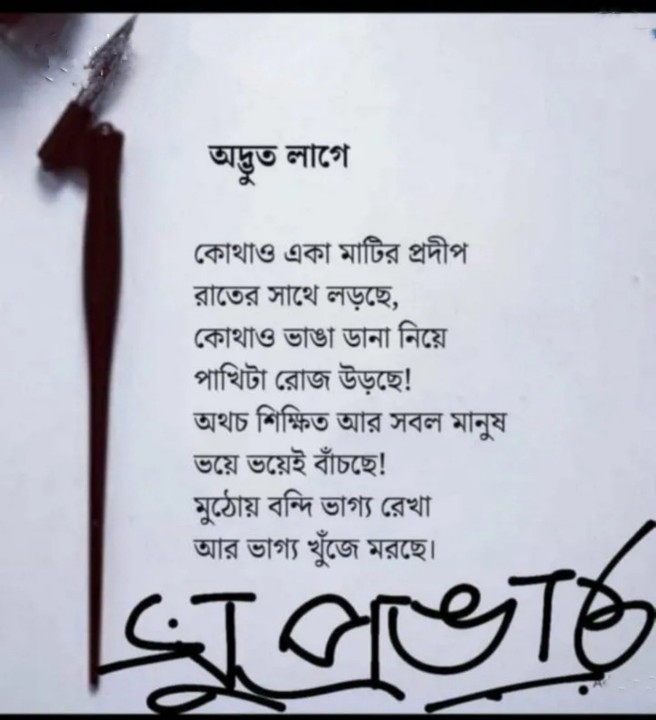 অদ্ভুত লাগে
কোথাও একা মাটির প্রদীপ
রাতের সাথে লড়ছে,
কোথাও ভাঙা ডানা নিয়ে
পাখিটা রোজ উড়ছে!
অথচ শিক্ষিত আর সবল মানুষ
ভয়ে ভয়েই বাঁচছে!
মুঠোয় বন্দি ভাগ্য রেখা
আর ভাগ্য খুঁজে মরছে।
সুপ্রভাত